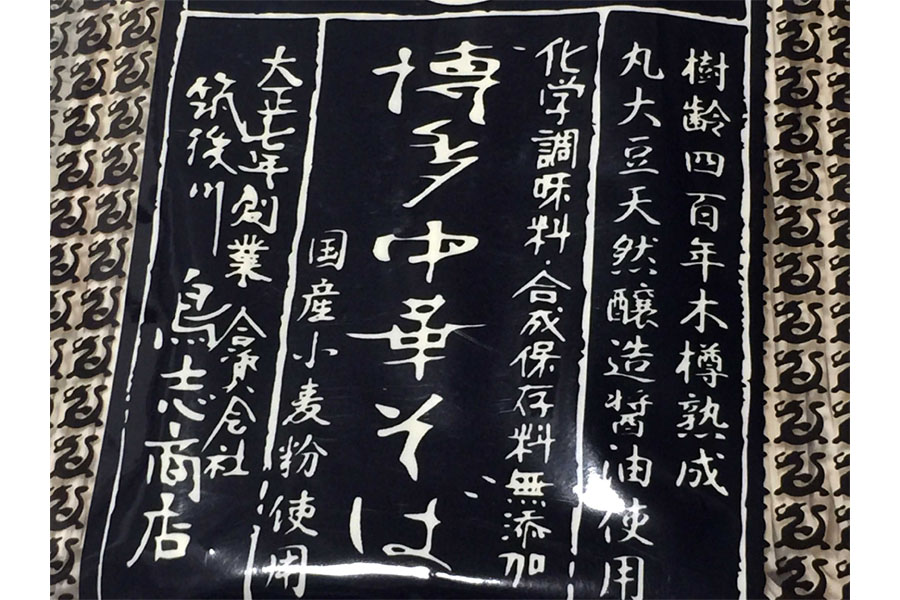 樹齢四百年木樽熟成
丸大豆天然醸造醤油使用
化学調味料・合成保存料無添加
博多中華そば
国産小麦粉使用
大正七年創業 合資会社
筑後川 鳥志商店